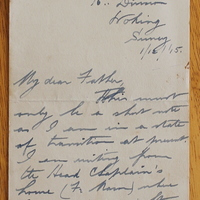 Woking
Surrey
1/12/15.
My dear Father,
This must
only be a short note
as I am in a state
of transition at present.
I am writing from
the Head Chaplain's
home (Fr.